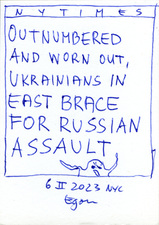 NYTIMES
OUTNUMBERED
AND WORN OUT,
UKRAINIANS IN
EAST BRACE
FOR RUSSIAN
ASSAULT
6 II 2023 NYC
Egon